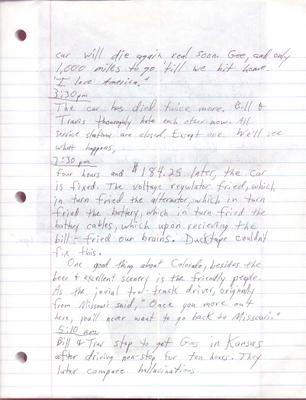 car will die again real soon. Gee, and only
1,000 miles to go 'till we hit home.
"I love America."
3:30 pm
The car has died twice more. Bill &
Travis thouroughly hate each other now. All
service stations are closed. Except one. We'll see
what happens.
7:30 pm
four hours and $184.25 later, the car
is fixed. The voltage regulator fried, which
in turn fried the alternator, which in turn
fried the battery, which in turn fried the
battery cables, which upon recieving the
bill - fried our brains. Ducktape couldn't
fix this.
One good thing about Colorado, besides the
beer & excellent scenery is the friendly people.
As the jovial tow-truck driver, originally
from Missouri said, "Once you move out
here, you'll never want to go back to Missouri."
5:10 am
Bill & Trav stop to get Gas in Kansas
after driving non-stop for ten hours. They
later compare hallucinations.